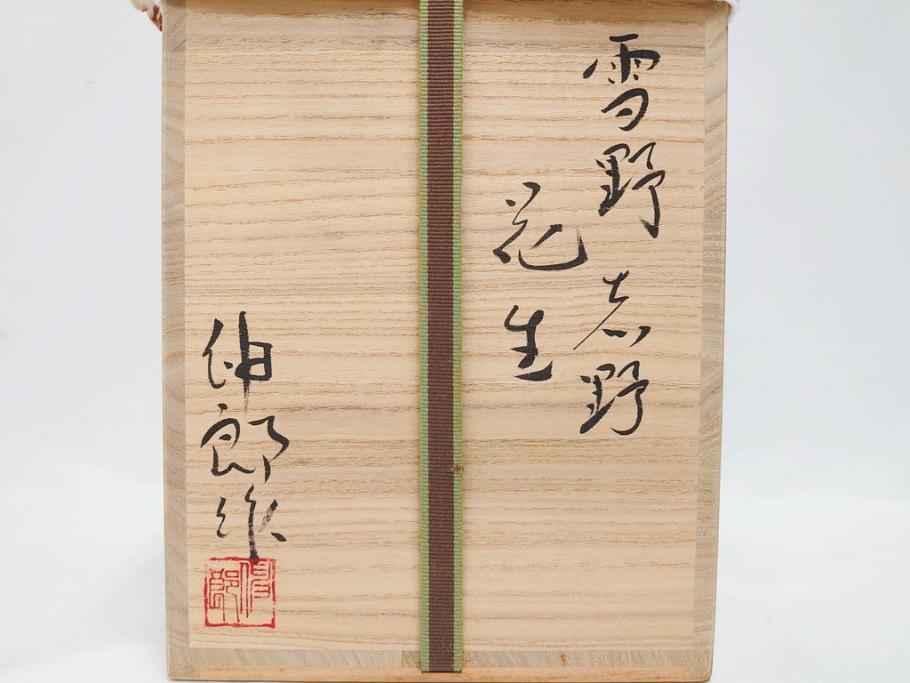 雪野志野
花生
伸郎作
伸郎